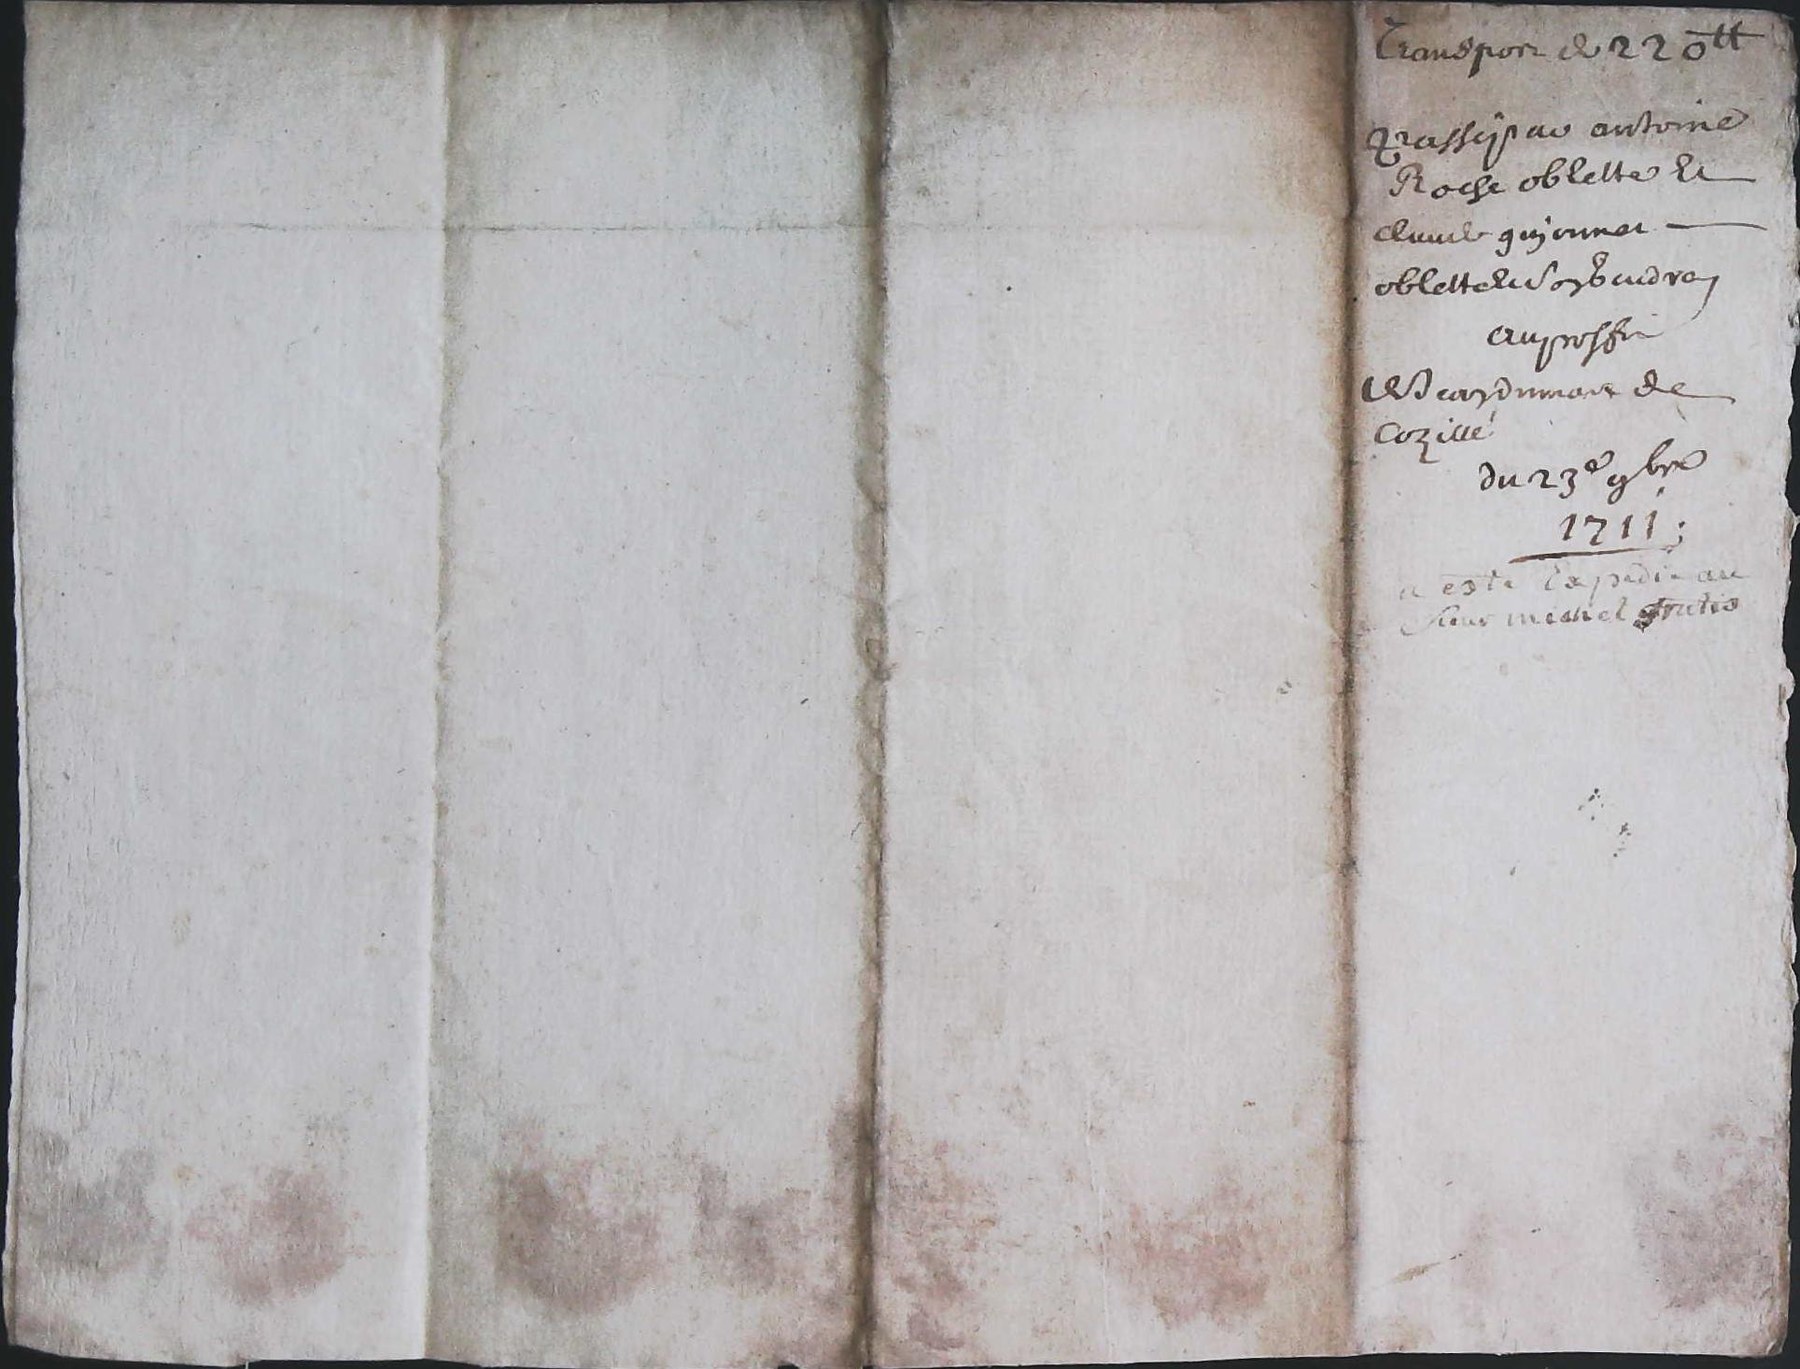 Transport de 220 tt
passé par antoine
Roche oblette et
claude guionnet
oblette et son gendre
au proffit
de Jean dumas de
Cozille
du 23e 9bre
1711;
a este Expedie au
sieur michel